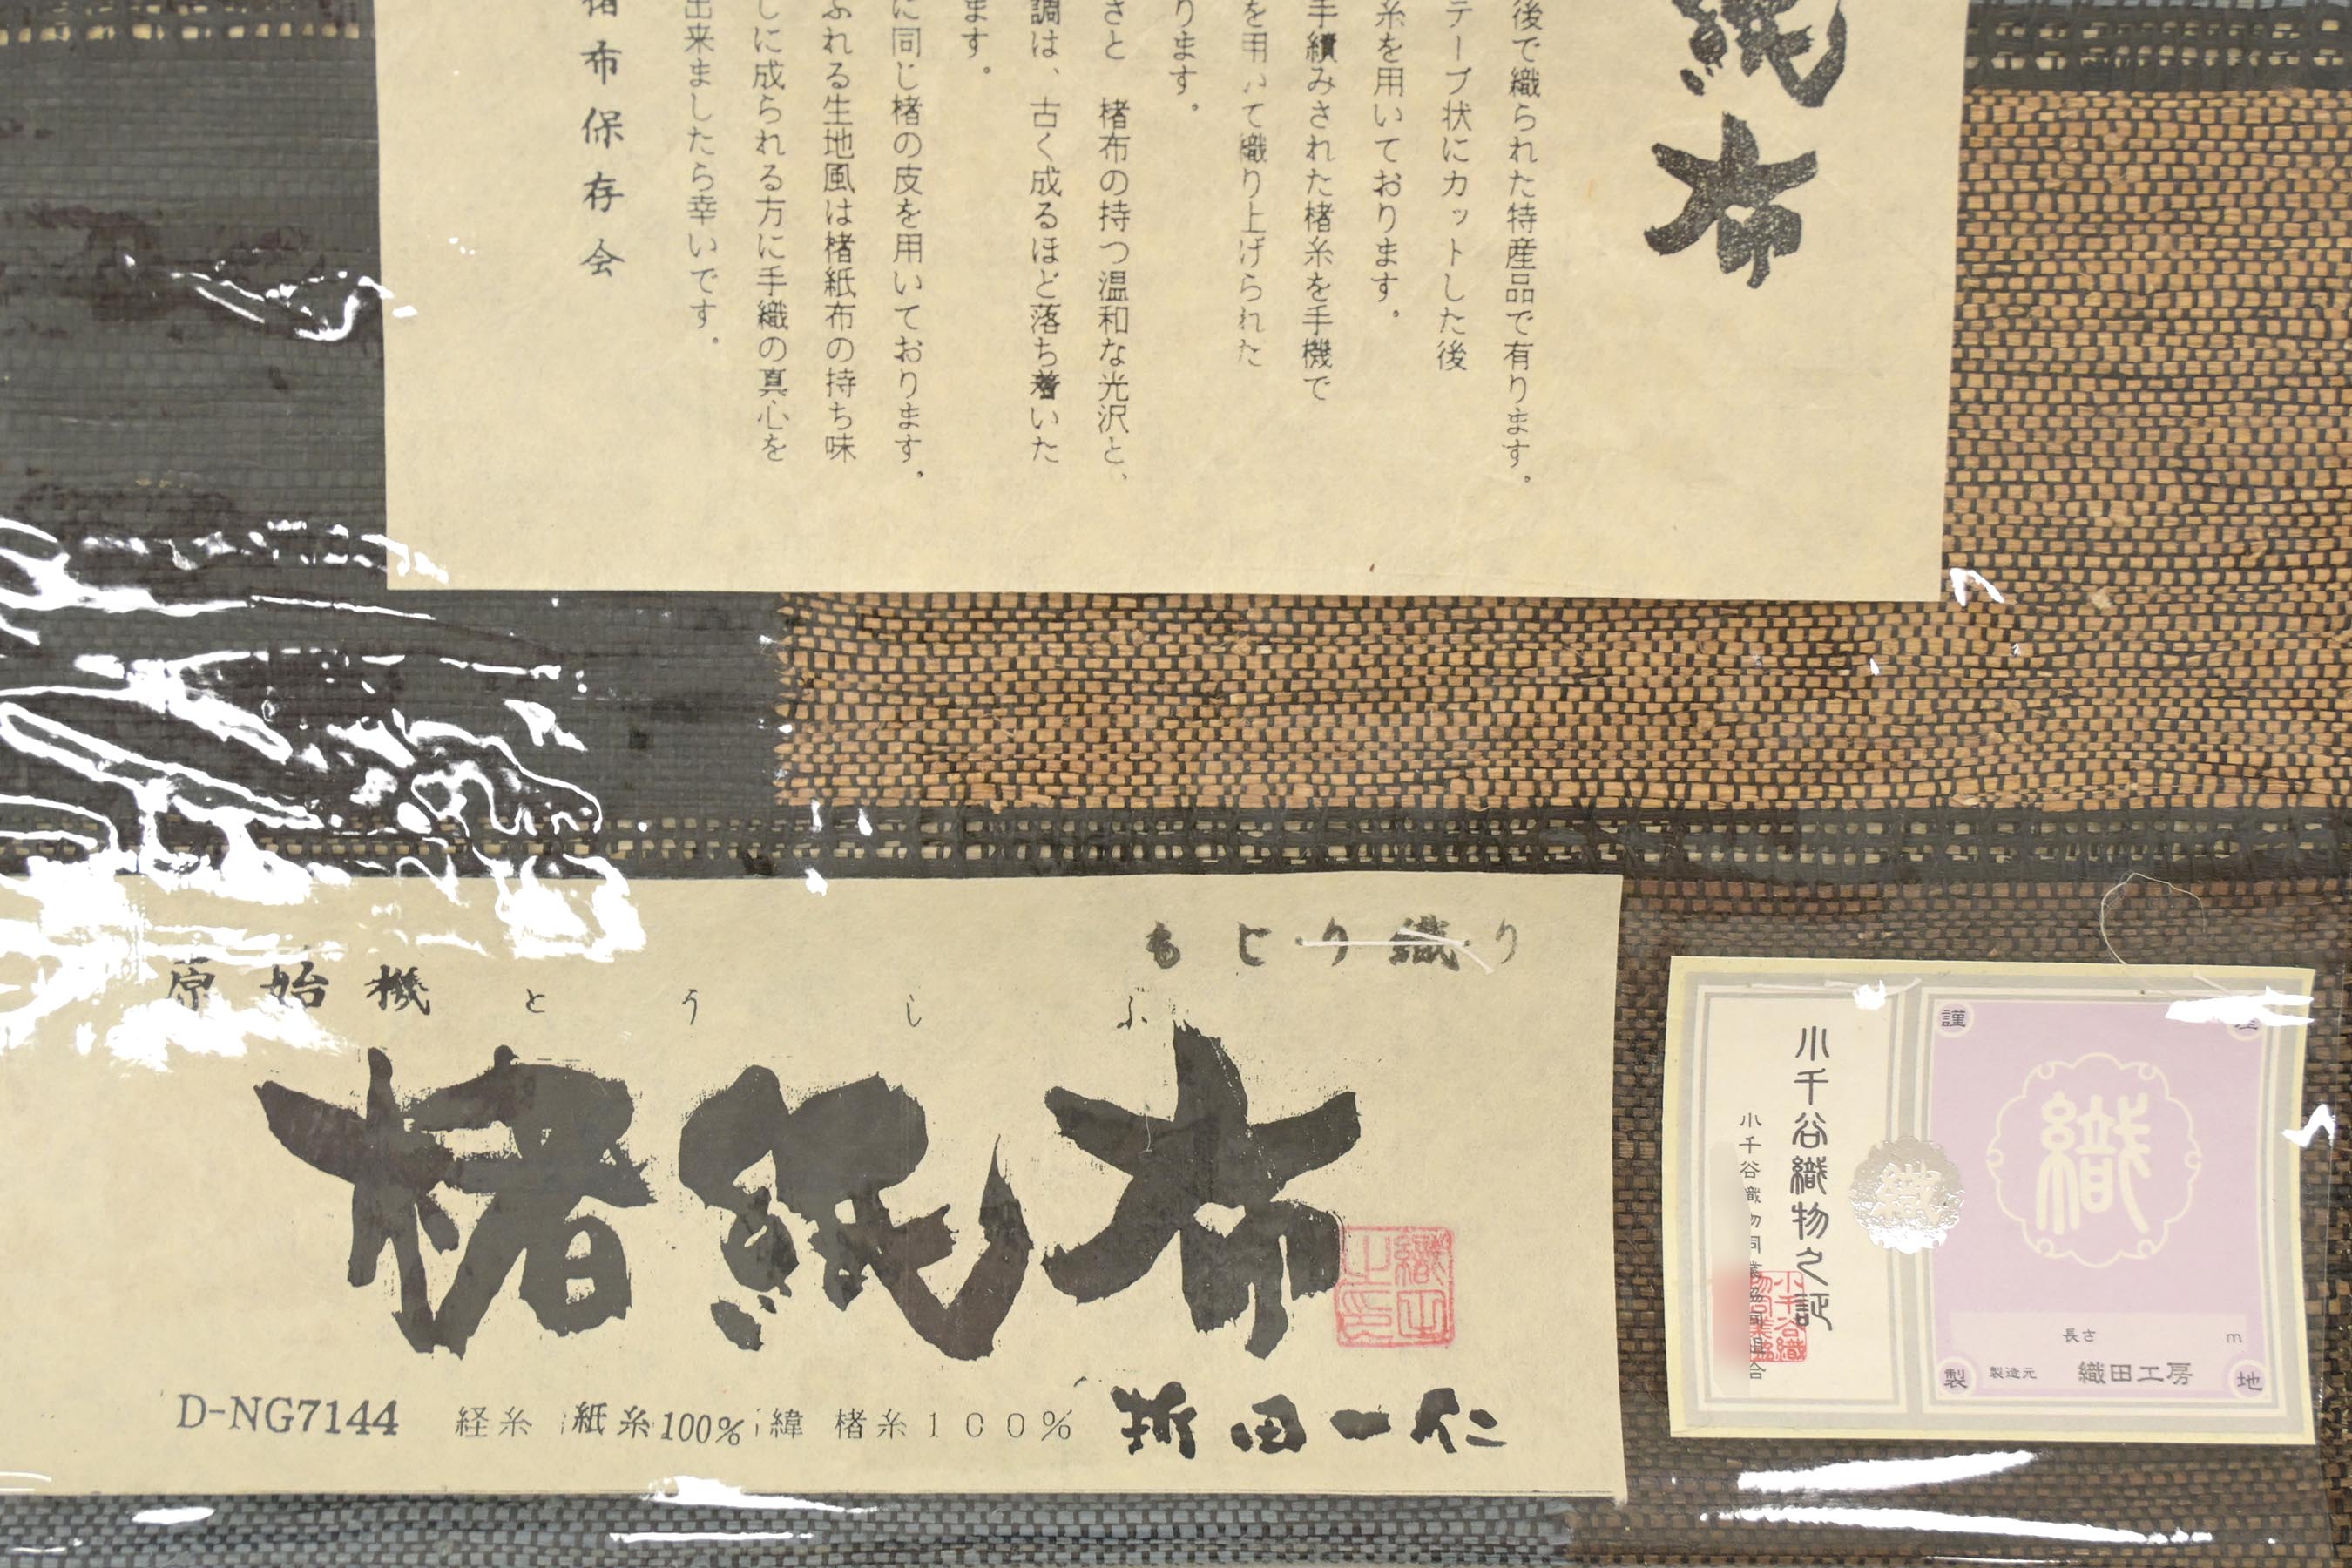 紙布
後で織られた特産品で有ります。
テープ状にカットした後
糸を用いております。
手績みされた楮糸を手機で
を用いて織り上げられた
ります。
さと 楮布の持つ温和な光沢と、
調は、古く成るほど落ち着いた
ます。
に同じ楮の皮を用いております。
ふれる生地風は楮紙布の持ち味
しに成られる方に手織の真心を
出来ましたら幸いです。
楮布保存会
もじり織り
原始機
とうしふ
楮紙布
D-NG7144 経糸 紙糸100% 緯 楮糸100%
織田一仁
謹
織
長さ m
製造元 織田工房
製 地
小千谷織物之証
小千谷織物同業協同組合
織